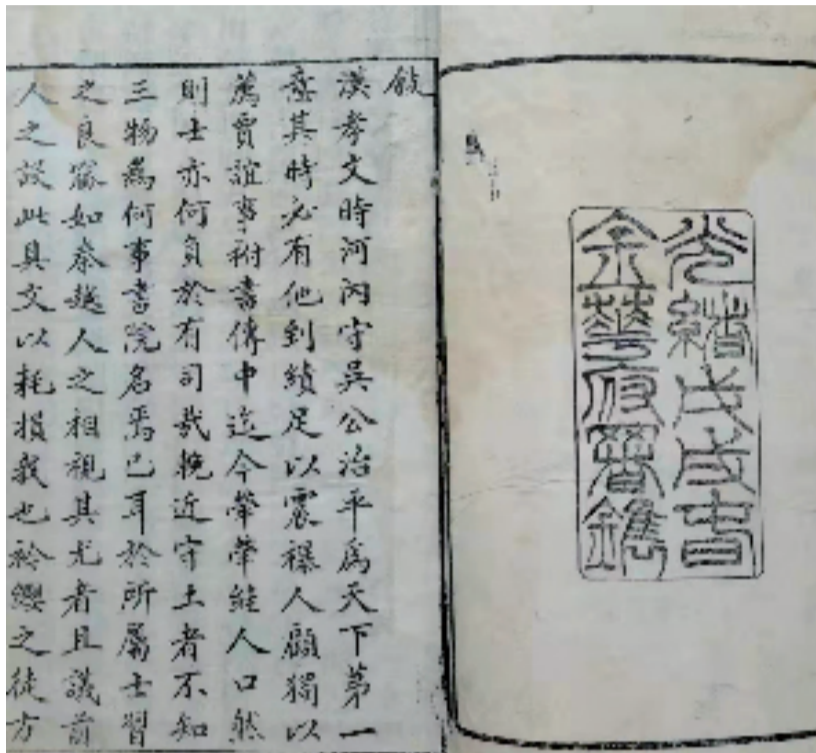 光緒戊戌旾
金華府署鐫
敘
漢孝文時河內守吳公治平爲天下第一
意其時必有他到績足以震襮人顧獨以
薦賈誼事附書傳中迄今犖犖絓人口然
則士亦何負於有司哉挽近守土者不知
三物爲何事書院名焉已耳於所屬士習
之良窳如秦越人之相視其尤者且議前
人之設此具文以耗損我也衿纓之徒方